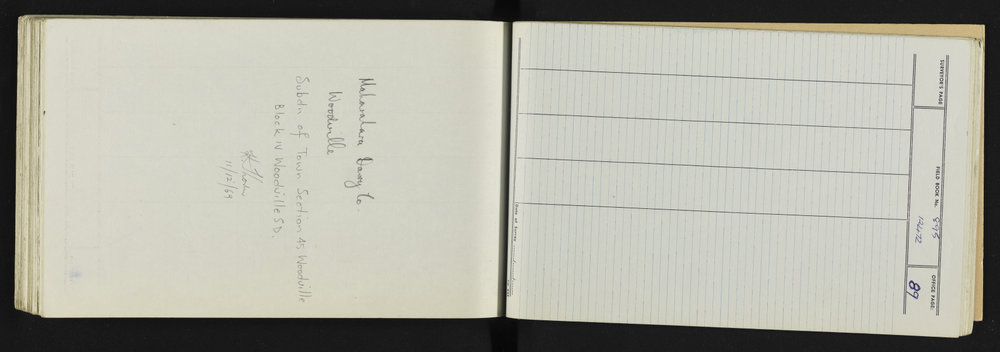 Maharahara Dairy Co.
Woodville
Subdn of Town Section 45 Woodville
Block IV Woodville S.D.
11/12/69
SURVEYOR'S PAGE
FIELD BOOK No. 898
12472
OFFICE PAGE:
89
Date of Survey